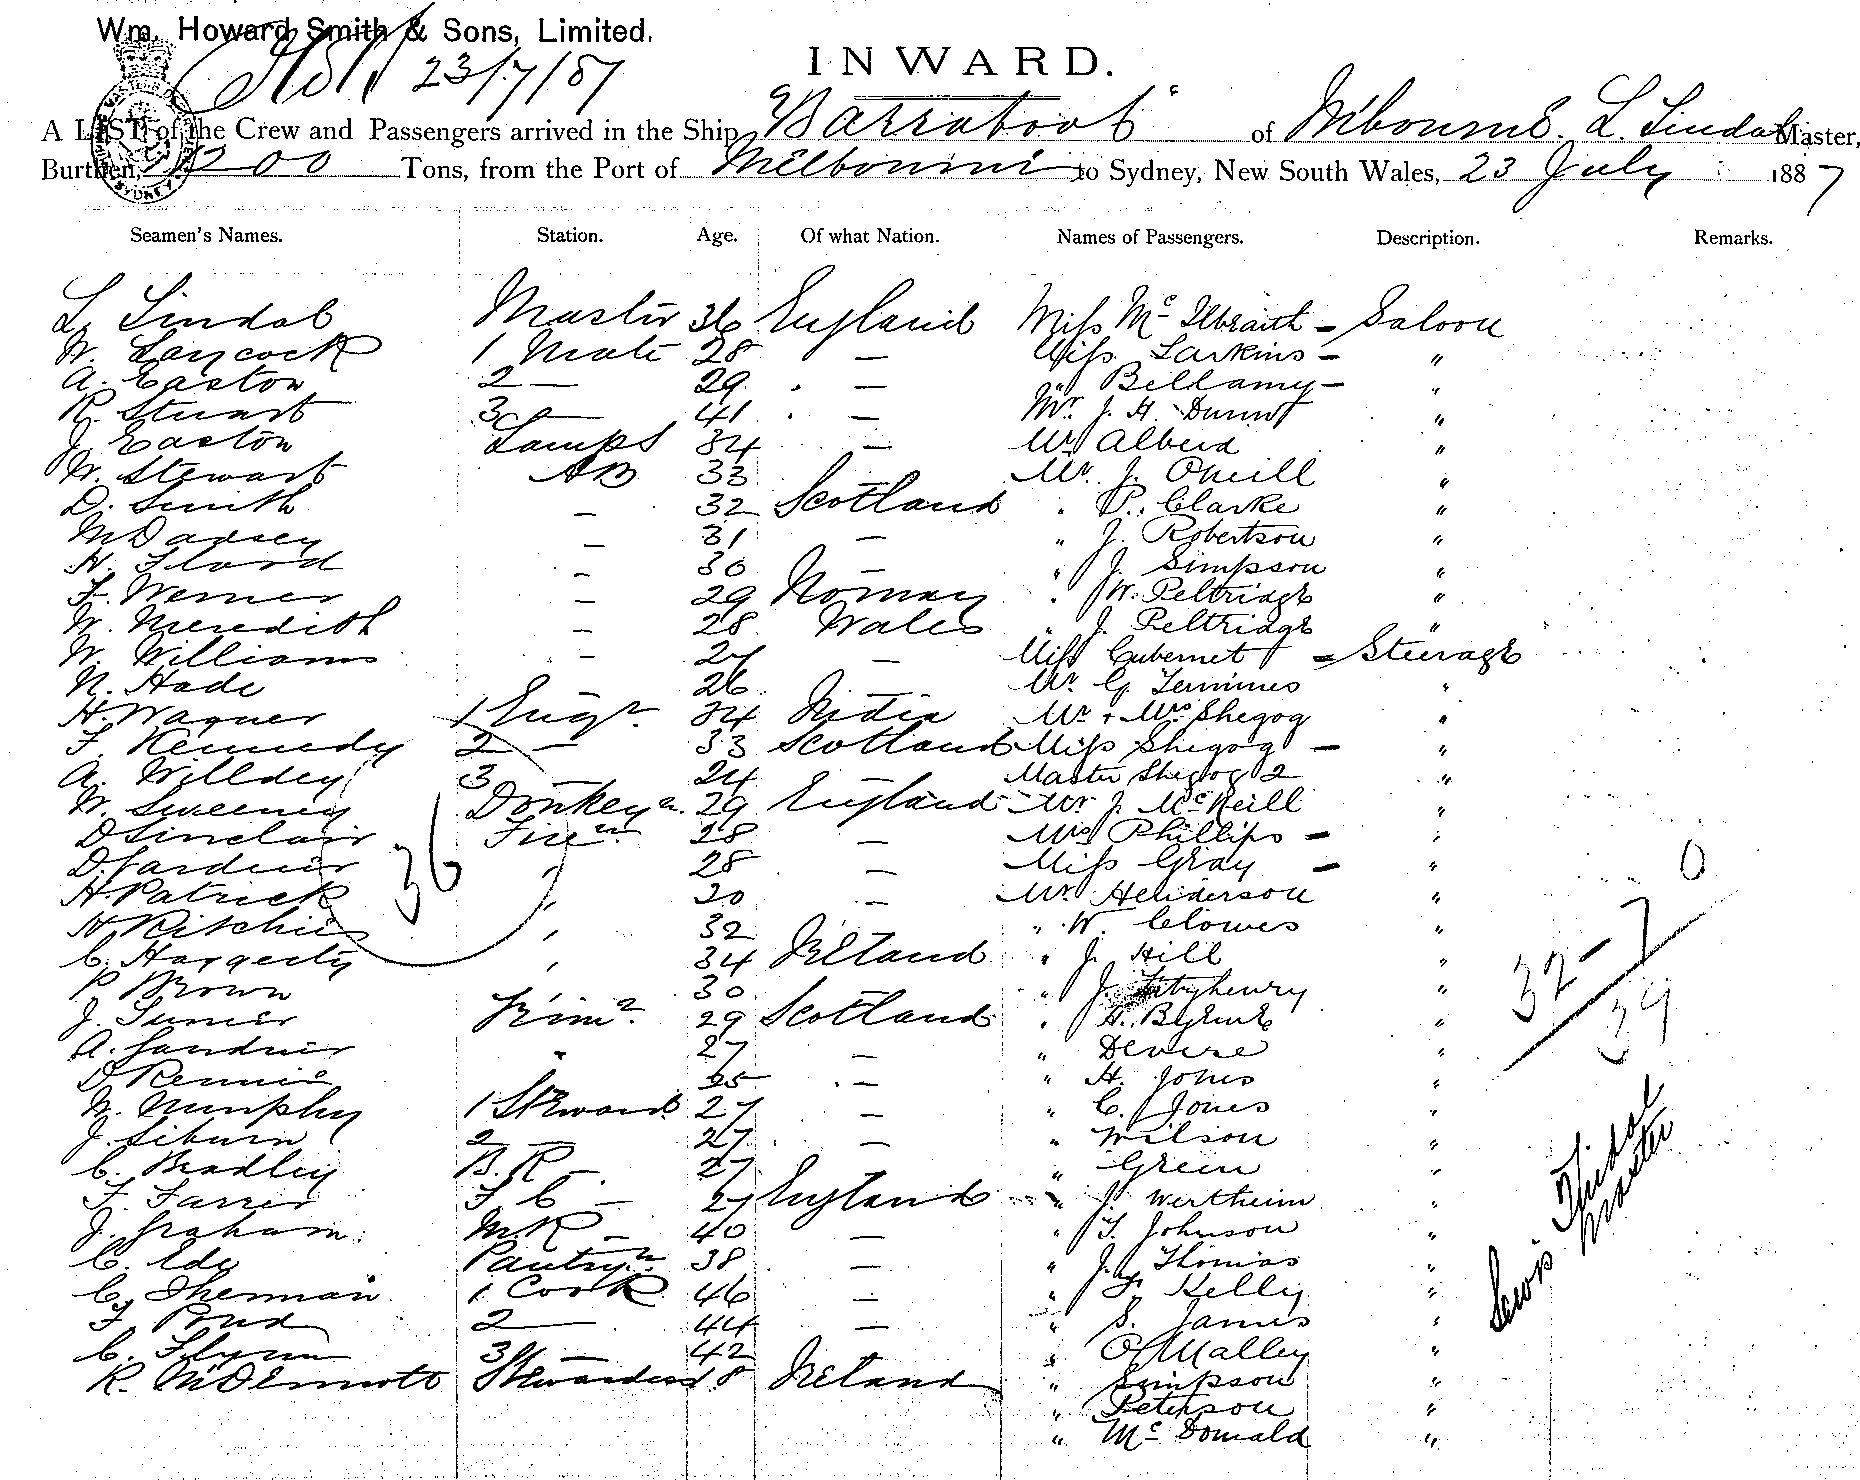 Wm. Howard Smith & Sons, Limited.
23/7/87
INWARD.
A LIST of the Crew and Passengers arrived in the Ship "Barrabool" of Melbourne. L. Tindal Master,
Burthen, 1200 Tons, from the Port of Melbourne to Sydney, New South Wales, 23 July 1887
Seamen's Names. Station. Age. Of what Nation. Names of Passengers. Description. Remarks.
L. Tindal Master 36 England Miss McIlbraith - Saloon
W. Laycock 1 Mate 28 — Miss Larkins - "
A. Easton 2 — 29 — " Bellamy - "
R. Stuart 3 — 41 — Mr. J. H. "
J. Easton Lamps 34 — Mr "
W. Stewart AB 33 Mr. J. ONeill "
D. Smith — 32 Scotland " P. Clarke "
M Darsey — 31 — " J. Robertson "
H. — 30 — " J. Simpson "
F. Werner — 29 Norway " W. Peltridge "
W. Meredith — 28 Wales " J. Peltridge "
W. Williams — 27 — Miss Cubernet - Steerage
N. Hade 26 Mr. G. "
H. Wagner 1 Engr. 34 India Mr. & Mrs Shegog "
F. Kennedy 2 — 33 Scotland Miss Shegog - "
A. Willdey 3 24 — Master Shegog 2 "
W. Sweeney Donkeyn. 29 England Mr J. McNeill "
D Sinclair Firen. 28 — Mrs Phillips - "
D. Gardner " 28 — Miss Gray - "
H. Patrick " 30 — Mr. Henderson "
H. Ritchie " 32 " W. Clowes "
C. Haggerty " 34 Ireland " J. Hill "
P Brown 30 " J. Fitzhenry "
J. Trimr. 29 Scotland " H. "
A. Gardner " 27 — " Devere "
D Rennie 25 — " H. Jones "
W. Murphy 1 Steward 27 — " C. Jones "
J. Siburn 2 — 27 — " Wilson "
C. Bradley B. R — 27 " Green "
F. Farrer F C — 27 England " J. Wertheim "
J. Graham M.R — 40 — " T. Johnson "
C. Ede Pantryn. 38 — " J. Thomas "
C. Sherman 1 Cook 46 — " F. Kelly "
F. Pond 2 — 44 — " S. James "
C. Flynn 3 — 42 " O'Malley "
R. McDermott Stewardess 18 Ireland " Simpson "
" Peterson "
" McDonald "
36
0
32 - 7
39
Lewis Tindal
Master